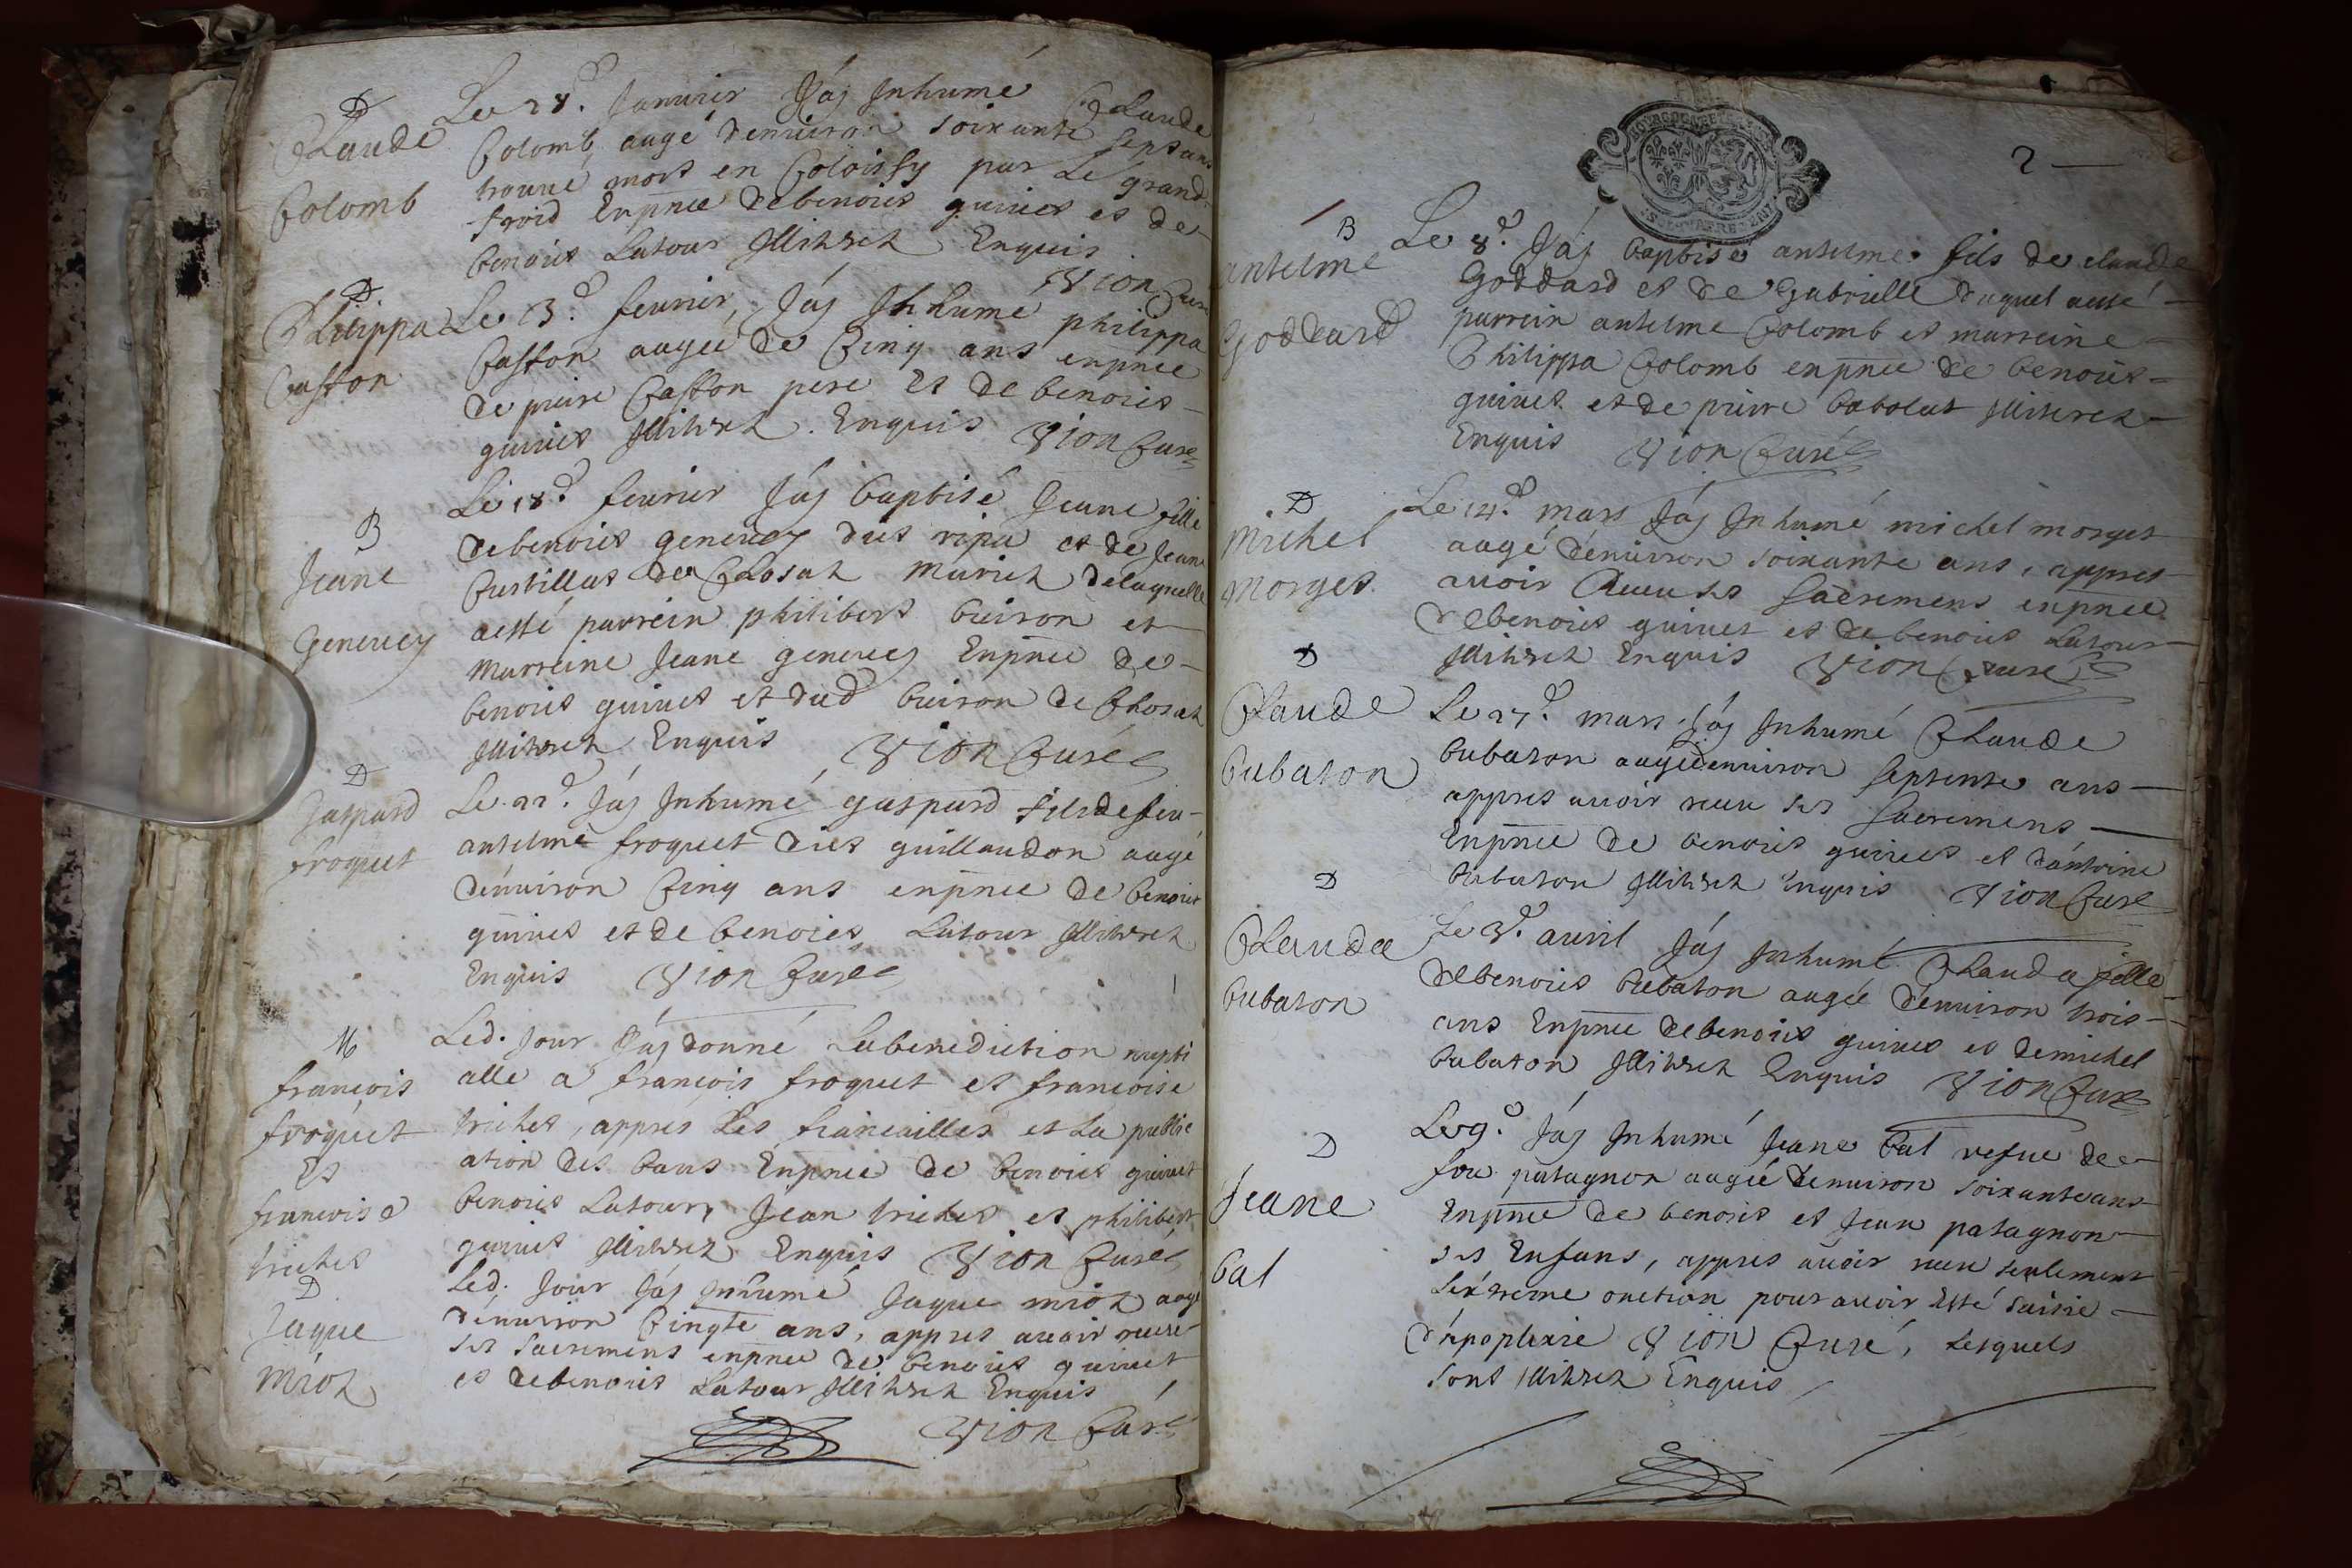 D
Claude
Colomb
Le 28.e Januier J'áj Inhumé Claude
Colomb, aagé denuiron soixante sept ans
trouué mort en Coloissy par Le grand
froid Enpn̄ce debenoict guinet et de
benoict Latour Illitrez Enquis
Vion Curé
D
Philippa
Caston
Le 13.e feurier, J'áj Inhumé philippa
Caston aagée de Cinq ans enpn̄ce
de pierre Caston pere Et de benoict
guinet Illitrez. Enquis Vion Curé
B
Jeane
Geneuey
Le 18.e feurier J'áj baptisé Jeane fille
debenoict geneuey dict ripa et de Jeane
Curtillat de Chosaz Mariez delaquelle
aesté parrein philibert buiron et
Marreine Jeane geneuey Enpn̄ce de
benoict guinet et dud buiron de Chosaz
Illitrez Enquis Vion Curé
D
Gaspard
froquet
Le 22.e J'áj Inhumé gaspard fils de feu
antelme froquet dict guillaudon aagé
d'enuiron Cinq ans enpn̄ce de benoict
guinet et de benoict Latour Illitrez
Enquis Vion Curé
M
francois
froquet
Et
francoise
trichet
Led. Jour J'áj donné Labenediction nupti
alle a francois froquet et francoise
trichet, appres Les fiancailles et La public
ation des bans Enpn̄ce de benoict guinet
benoict Latour, Jean trichet et philibert
guinet Illitrez Enquis Vion Curé
D
Jaque
mioz
Led. Jour J'áj Inhumé Jaque mioz aagé
d'enuiron Cinqte ans, appres auoir receu
ses sacremens enpn̄ce de benoict guinet
et debenoict Latour Illitrez Enquis
Vion Curé
2
B
antelme
Goddard
Le 8.e J'áj baptisé antelme fils de claude
Goddard et de Gabrielle duquel aesté
parrein antelme Colomb et marreine
Philippa Colomb enpn̄ce de benoict
guinet et de pierre Illitrez
Enquis Vion Curé
D
Michel
Morget
Le 14.e mars J'áj Inhumé michel morget
aagé d'enuiron soixante ans, appres
auoir Receu ses Sacremens enpn̄ce
debenoict guinet et debenoict Latour
Illitrez Enquis Vion Curé
D
Claude
Cubaton
Le 27.e mars J'áj Inhumé Claude
Cubaton aagédenuiron septente ans
appres auoir receu ses Sacremens
Enpn̄ce de benoict guinet et d'antoine
Cubaton Illitrez Enquis Vion Curé
D
Clauda
Cubaton
Le 3.e auril J'áj Inhumé Clauda fille
debenoict Cubaton aagée d'enuiron trois
ans Enpn̄ce debenoict guinet et demichel
Cubaton Illitrez Enquis Vion Curé
D
Jeane
bal
Le 9.e J'áj Inhumé Jeane bal vefue de
feu patagnon aagée denuiron soixanteans
Enpn̄ce de benoict et Jean patagnon
ses Enfans, appres auoir receu seulement
L'extreme onction pour auoir Esté saisie
d'apoplexie Vion Curé, Lesquels
sont Illitrez Enquis